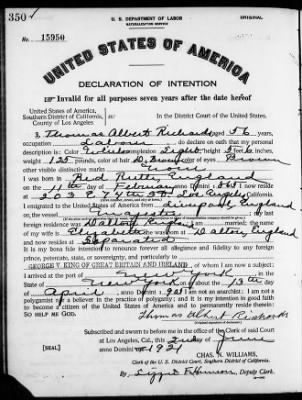 350
U. S. DEPARTMENT OF LABOR
NATURALIZATION SERVICE
ORIGINAL
No. 15950
UNITED STATES OF AMERICA
DECLARATION OF INTENTION
Invalid for all purposes seven years after the date hereof
United States of America,
Southern District of California,
County of Los Angeles
ss:
In the District Court of the United States.
I, Thomas Albert Richards, aged 56 years,
occupation Laborer, do declare on oath that my personal
description is: Color White, complexion Light, height 5 feet 6 inches,
weight 125 pounds, color of hair D. Brown, color of eyes Brown
other visible distinctive marks
I was born in Red Ruth England
on the 11th day of February, anno Domini 1865; I now reside
at Los Angeles, California.
I emigrated to the United States of America from Liverpool, England
on the vessel Majestic; my last
foreign residence was Dalton England; I am married; the name
of my wife is Elizabeth; she was born in Dalton, England
and now resides at Separated
It is my bona fide intention to renounce forever all allegiance and fidelity to any foreign
prince, potentate, state, or sovereignty, and particularly to
GEORGE V, KING OF GREAT BRITAIN AND IRELAND, of whom I am now a subject;
I arrived at the port of New York, in the
State of New York, on or about the 15th day
of April, anno Domini 1903; I am not an anarchist; I am not a
polygamist nor a believer in the practice of polygamy; and it is my intention in good faith
to become a citizen of the United States of America and to permanently reside therein:
SO HELP ME GOD.
Thomas Albert Richards
Subscribed and sworn to before me in the office of the Clerk of said Court
at Los Angeles, Cal., this 2nd day of June
anno Domini 1921
[SEAL]
CHAS. N. WILLIAMS,
Clerk of the U.S. District Court, Southern District of California
By Deputy Clerk.